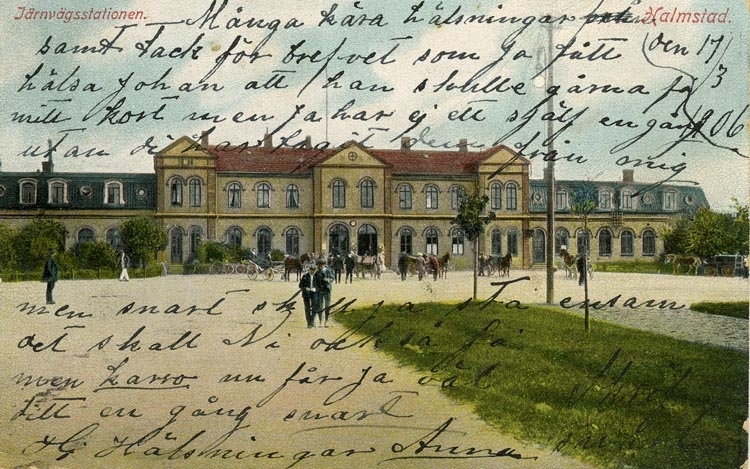 Järnvägsstationen.
Halmstad.
Många kära hälsningar
den 17/3 06
samt tack för brefvet som Ja fått
hälsa Johan att han skulle gärna få
mitt kort men Ja har ej ett själf en gång
utan di har tagit dem från mig
men snart skall ja sta ensam
det skall Ni också få
men karro nu får Ja väl
titt en gång snart
Hälsningar Anna